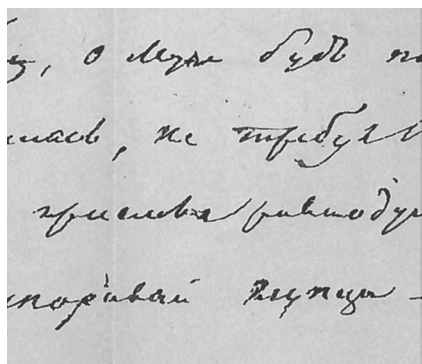 ью, о Муза будь по
шась, не требуя
приемли равноду
споривай глупца —